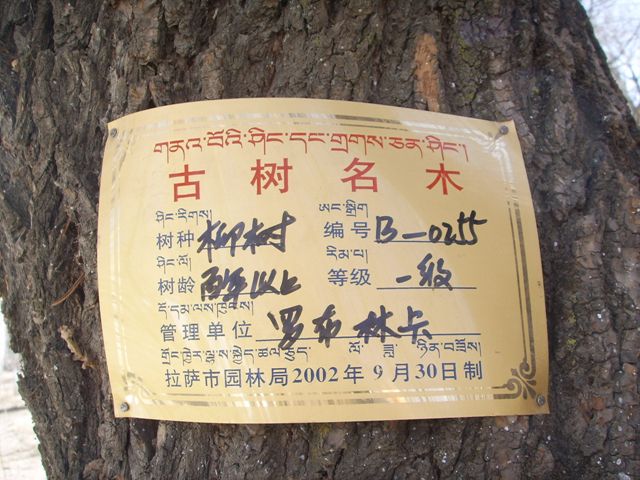 གནའ་བོའི་ཤིང་དང་གྲགས་ཅན་ཤིང་།
古树名木
ཤིང་རིགས་ ཨང་སྒྲིག
树种 柳树 编号 B-0255
ཤིང་ལོ་ རིམ་པ།
树龄 百年以上 等级 一级
དོ་དམ་ལས་ཁུངས་
管理单位 罗布林卡
ལོ་ ཟླ་ ཉིན་བཟོས།
拉萨市园林局2002年9月30日制